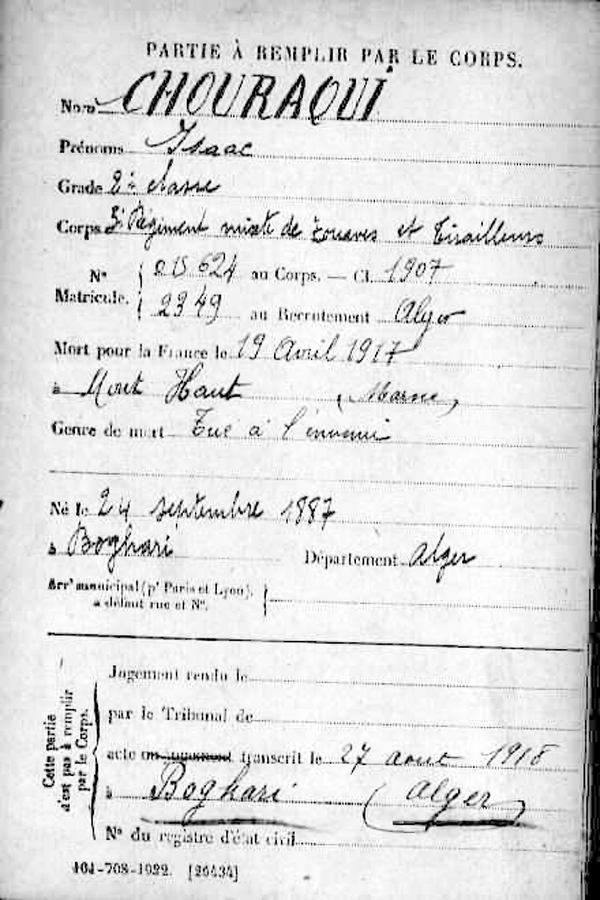 PARTIE À REMPLIR PAR LE CORPS.
Nom CHOURAQUI
Prénoms Isaac
Grade 2e classe
Corps 3e Régiment mixte de Zouaves et Tirailleurs
N° 015624 au Corps. — Cl. 1907
Matricule. 2349 au Recrutement Alger
Mort pour la France le 19 Avril 1917
à Mont Haut (Marne)
Genre de mort Tué à l'ennemi
Né le 24 septembre 1887
à Boghari Département Alger
Arrt municipal (pr Paris et Lyon),
à défaut rue et N°.
Cette partie
n'est pas à remplir
par le Corps.
Jugement rendu le
par le Tribunal de
acte ou jugement transcrit le 27 aout 1918
à Boghari (Alger)
N° du registre d'état civil
[26434]